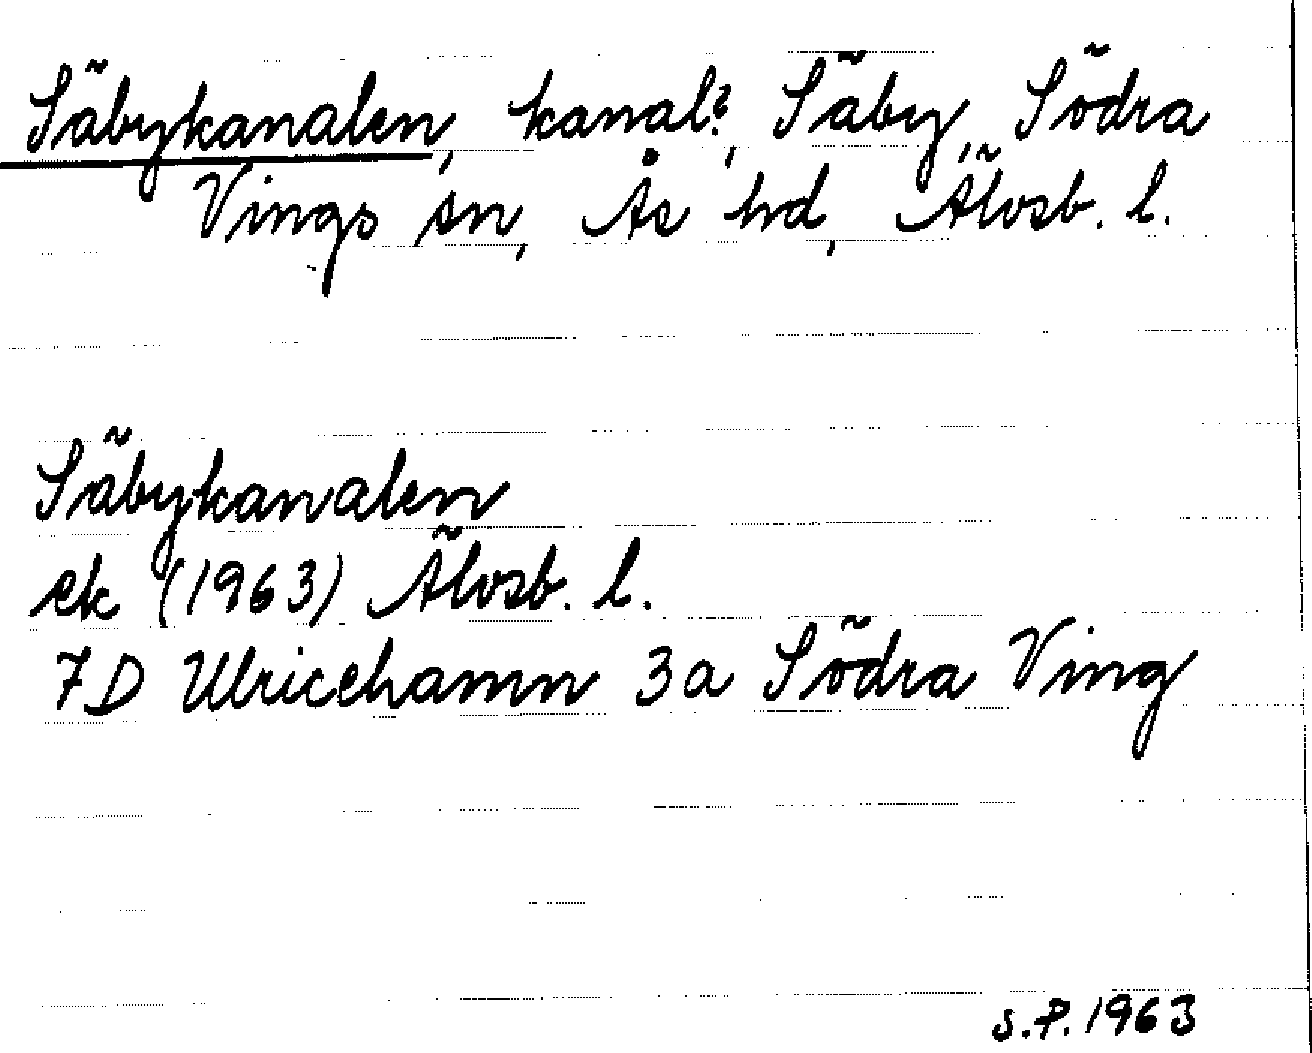 Säbykanalen, kanal?, Säby, Södra
Vings sn, Ås hd, Älvsb. l.
Säbykanalen
ek (1963) Älvsb. l.
7D Ulricehamn 3a Södra Ving
S.P. 1963